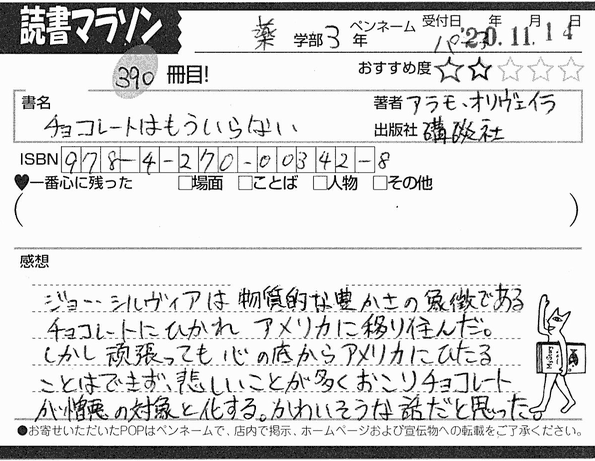 読書マラソン
薬 学部 3 年 ペンネーム パ 受付日 '20.11.14 年 月 日
390 冊目! おすすめ度 ☆☆☆☆☆
書名 チョコレートはもういらない
著者 アラモ、オリヴェイラ
出版社 講談社
ISBN 978-4-270-00342-8
♥一番心に残った □場面 □ことば □人物 □その他
( )
感想
ジョー・シルヴィアは物質的な豊かさの象徴である
チョコレートにひかれ アメリカに移り住んだ。
しかし 頑張っても 心の底からアメリカにひたる
ことはできず、悲しいことが多くおこりチョコレート
が憎悪の対象と化する。かわいそうな話だと思った。
●お寄せいただいたPOPはペンネームで、店内で掲示、ホームページおよび宣伝物への転載をご了承ください。